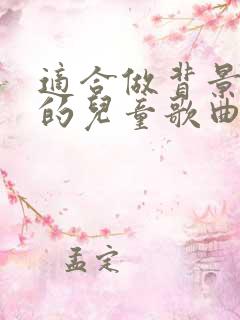 適合做背景
的兒童歌曲
孟定